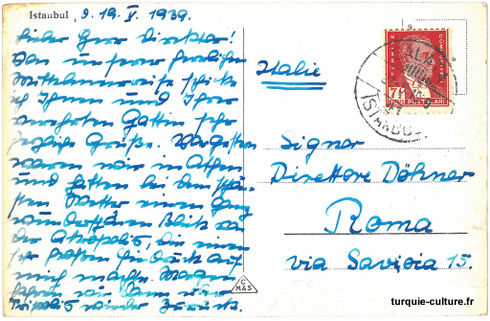 Istanbul, d. 19. V. 1939.
Lieber Herr Direktor!
Von unserer herrlichen
Mittelmeerreise schicke
ich Ihnen und Ihrer
verehrten Gattin sehr
herzliche Grüße. Vorgestern
waren wir in Athen
und hatten bei dem schön-
sten Wetter einen ganz
wunderschönen Blick von
der Akropolis, die einen
sehr großen Eindruck auf
mich machte. Morgen
fahren wir dann über
Tripolis wieder zurück.
C
M&S
Italie
Signor
Direttore Döhner
Roma
via Savoia 15.
7½
POSTALARI
GALATA
ISTANBUL
turquie-culture.fr